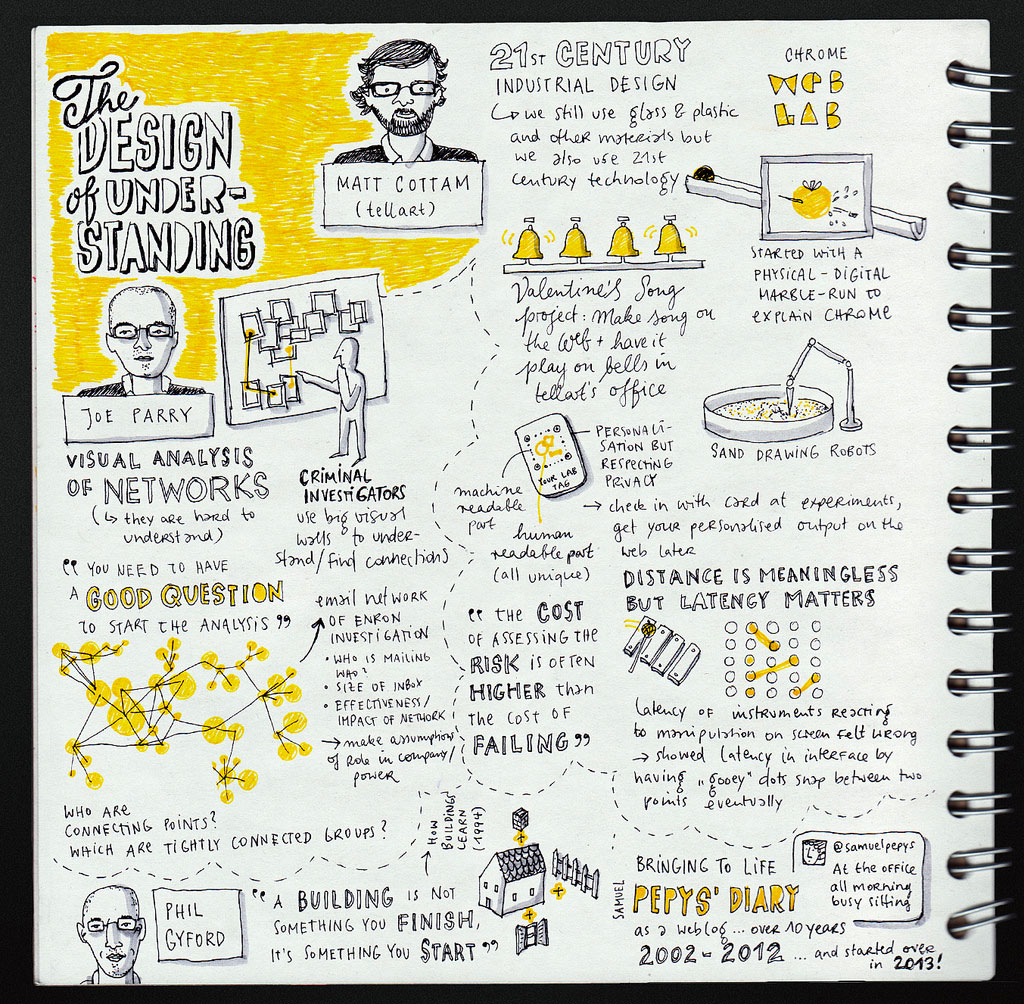 The
DESIGN
of UNDER-
STANDING
MATT COTTAM
(tellart)
21ST CENTURY
INDUSTRIAL DESIGN
↳ we still use glass & plastic
and other materials but
we also use 21st
century technology
CHROME
WEB
LAB
STARTED WITH A
PHYSICAL-DIGITAL
MARBLE-RUN TO
EXPLAIN CHROME
Valentine's Song
project: Make song on
the web + have it
play on bells in
tellart's office
SAND DRAWING ROBOTS
YOUR LAB
TAG
machine
readable
part
human
readable part
(all unique)
PERSONALI-
SATION BUT
RESPECTING
PRIVACY
→ check in with card at experiments,
get your personalised output on the
web later
"THE COST
OF ASSESSING THE
RISK IS OFTEN
HIGHER than
the COST OF
FAILING"
DISTANCE IS MEANINGLESS
BUT LATENCY MATTERS
Latency of instruments reacting
to manipulation on screen felt wrong
→ showed latency in interface by
having „gooey" dots snap between two
points eventually
JOE PARRY
VISUAL ANALYSIS
OF NETWORKS
(↳ they are hard to
understand)
CRIMINAL
INVESTIGATORS
use big visual
walls to under-
stand/find connections
"YOU NEED TO HAVE
A GOOD QUESTION
TO START THE ANALYSIS"
email network
OF ENRON
INVESTIGATION
• WHO IS MAILING
WHO?
• SIZE OF INBOX
• EFFECTIVENESS/
IMPACT OF NETWORK
→ make assumptions
of role in company/
power
WHO ARE
CONNECTING POINTS?
WHICH ARE TIGHTLY CONNECTED GROUPS?
PHIL
GYFORD
"A BUILDING IS NOT
SOMETHING YOU FINISH,
IT'S SOMETHING YOU START"
HOW
BUILDINGS
LEARN
(1994)
BRINGING TO LIFE
SAMUEL
PEPYS' DIARY
as a weblog ... over 10 years
2002-2012 ... and started over
in 2013!
@samuelpepys
At the office
all morning
busy sitting